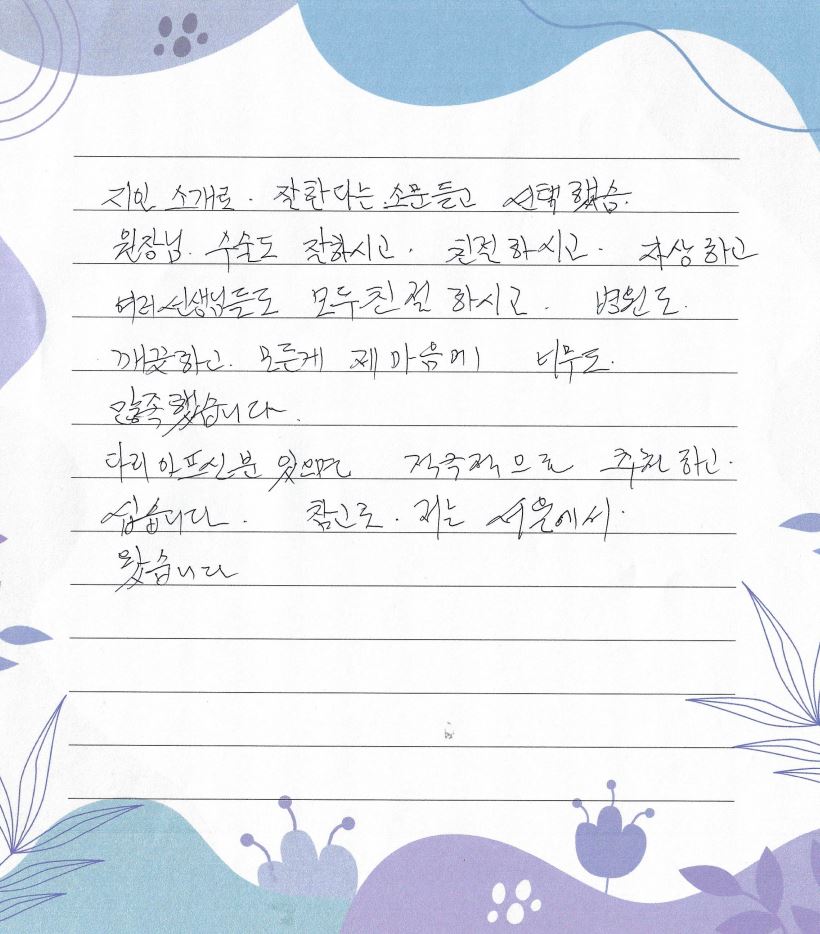 지인 소개로. 잘한다는 소문듣고 선택했슴.
원장님. 수술도 잘하시고. 친절하시고. 자상하고
여러선생님들도 모두친절 하시고. 병원도.
깨끗하고. 모든게 제마음에 너무도.
만족했습니다.
다리아프신분 있으면 적극적으로 추천하고.
싶습니다. 참고로. 저는 서울에서.
왔습니다